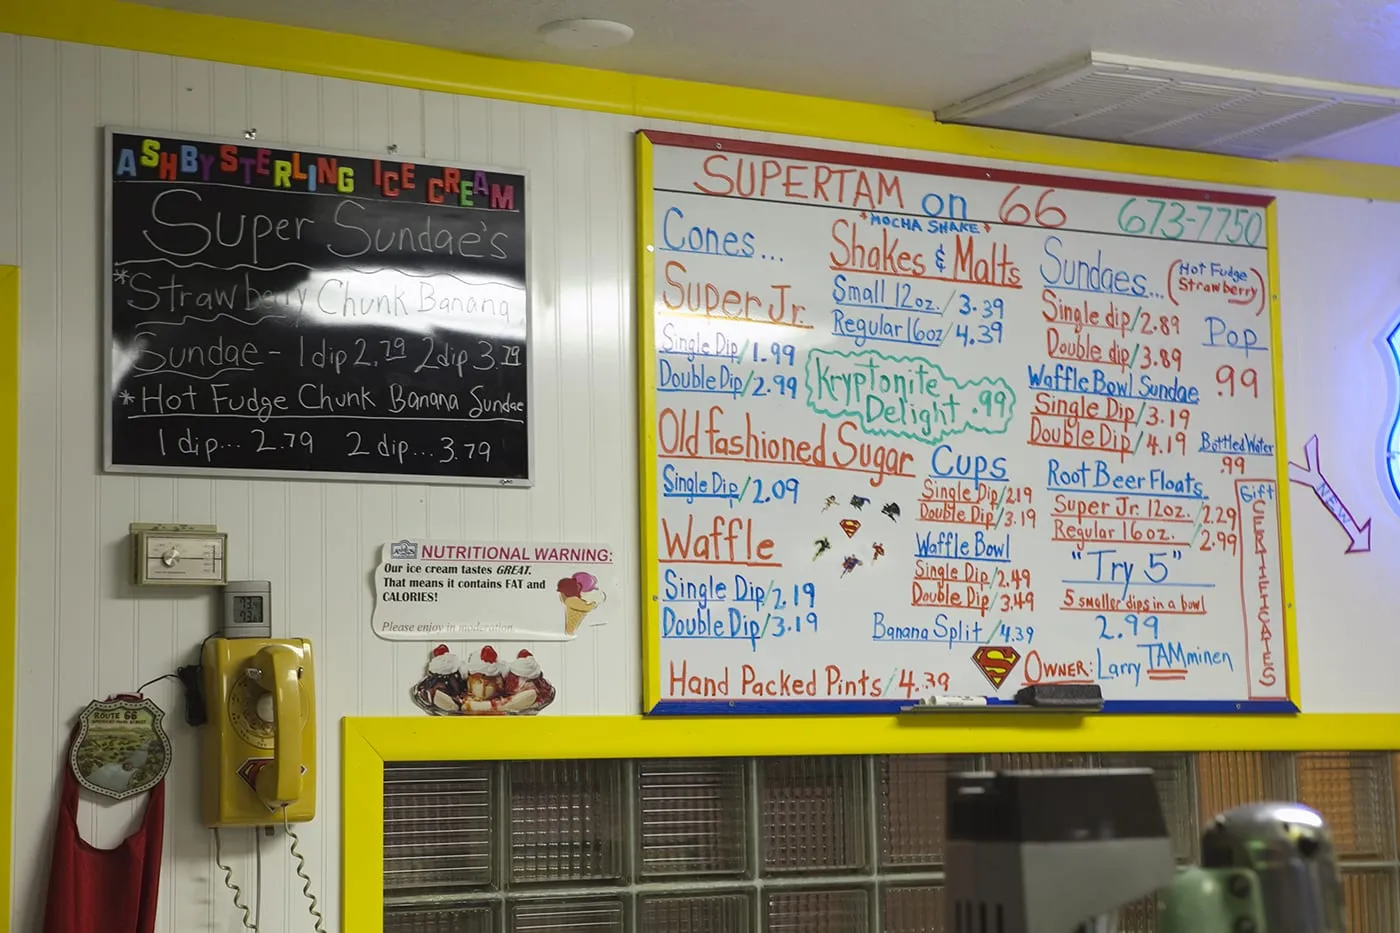 ASHBY STERLING ICE CREAM
Super Sundae's
*Strawberry Chunk Banana
Sundae - 1 dip 2.79 2 dip 3.79
*Hot Fudge Chunk Banana Sundae
1 dip... 2.79 2 dip... 3.79
NUTRITIONAL WARNING:
Our ice cream tastes GREAT.
That means it contains FAT and
CALORIES!
Please enjoy in moderation.
ROUTE 66
SUPERTAM on 66 673-7750
Cones...
Super Jr.
Single Dip/1.99
Double Dip/2.99
Old fashioned Sugar
Single Dip/2.09
Waffle
Single Dip/2.19
Double Dip/3.19
Hand Packed Pints/4.39
*MOCHA SHAKE*
Shakes & Malts
Small 12oz./3.39
Regular 16oz/4.39
Kryptonite
Delight .99
Cups
Single Dip/2.19
Double Dip/3.19
Waffle Bowl
Single Dip/2.49
Double Dip/3.49
Banana Split/4.39
Sundaes... (Hot Fudge
Strawberry)
Single dip/2.89
Double dip/3.89
Waffle Bowl Sundae
Single Dip/3.19
Double Dip/4.19
Root Beer Floats
Super Jr. 12oz. /2.29
Regular 16oz. /2.99
"Try 5"
5 smaller dips in a bowl
2.99
OWNER: Larry TAMminen
Pop
.99
Bottled Water
.99
Gift
CERTIFICATES
NEW